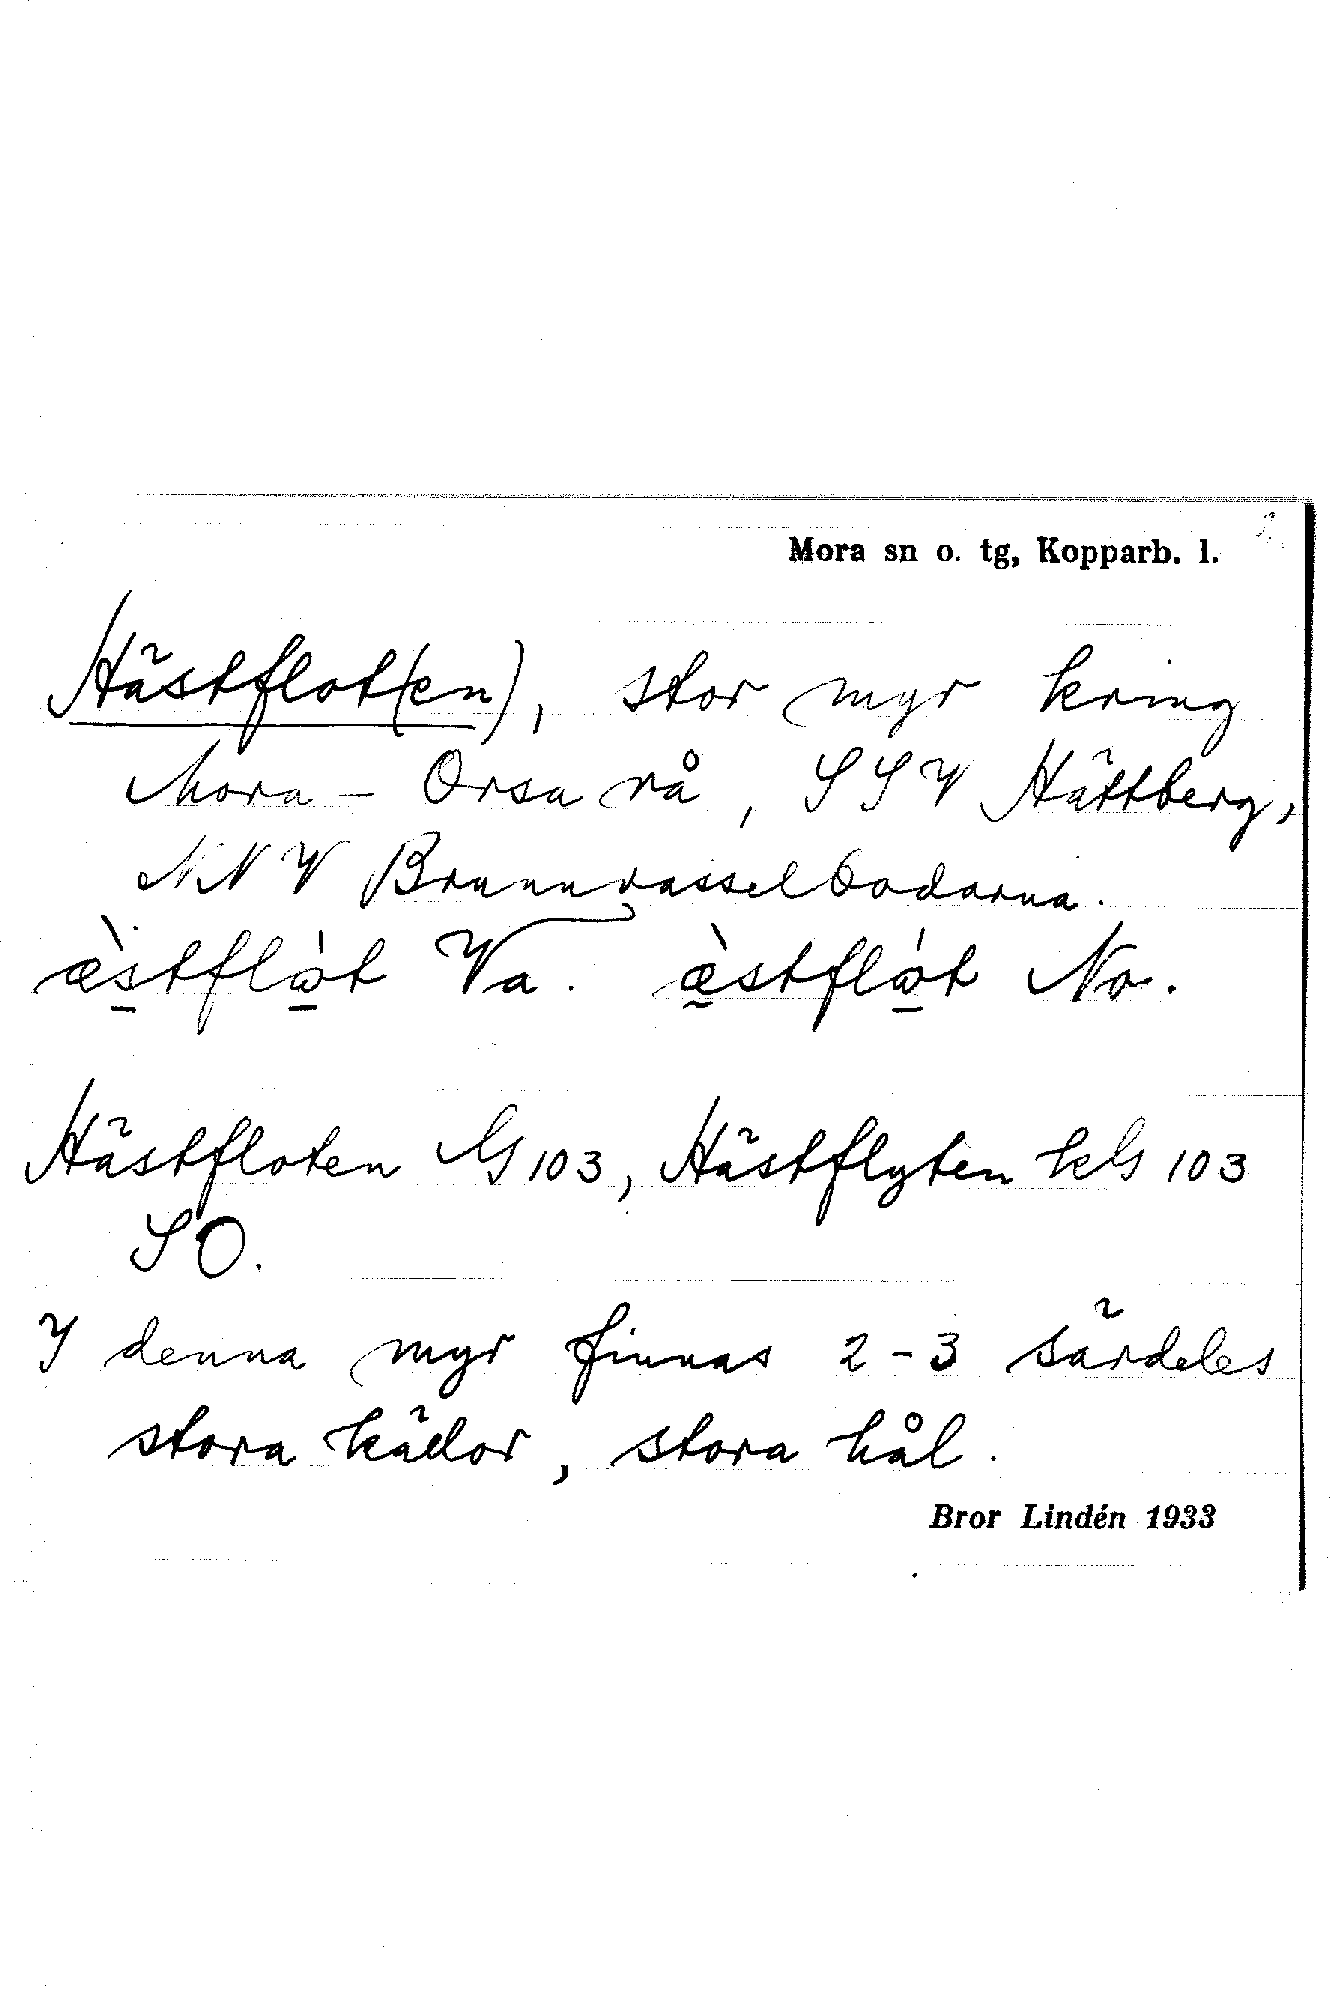 Mora sn o. tg, Kopparb. l.
Hästflot(en), stor myr kring
Mora - Orsa rå, SSV Hättberg,
NNV Brunnvasselbodarna.
æ̀stflòt Va. æ̀stflòt No.
Hästfloten G 103, Hästflyten kG 103
SO.
I denna myr finnas 2-3 särdeles
stora källor, stora hål.
Bror Lindén 1933